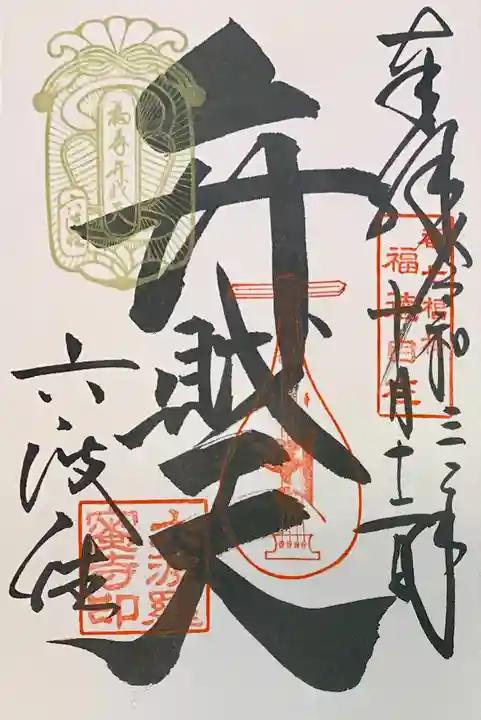 奉拝 令和三年
十月十二日
弁財天
六波羅
福寿弁財天
都七福神
福徳自在
六波羅
蜜寺印